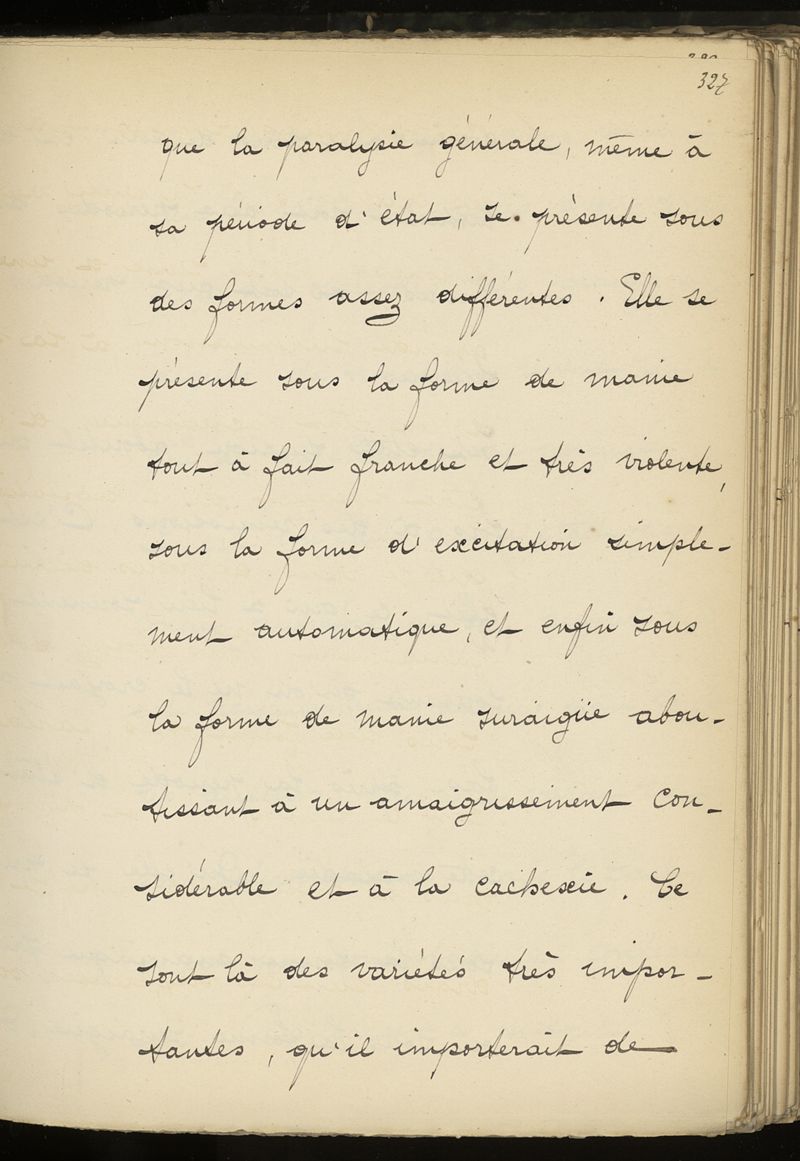 327
que la paralysie générale, même à
sa période d'état, se présente sous
des formes assez différentes. Elle se
présente sous la forme de manie
tout à fait franche et très violente,
sous la forme d'excitation simple-
ment automatique, et enfin sous
la forme de manie suraigüe abou-
tissant à un amaigrissement con-
sidérable et à la cachexie. Ce
sont là des variétés très impor-
tantes, qu'il importerait de